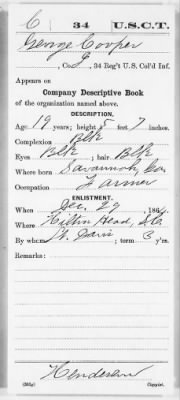 C 34 U.S.C.T.
George Cooper
, Co. J, 34 Reg't U.S. Col'd Inf.
Appears on
Company Descriptive Book
of the organization named above.
DESCRIPTION.
Age 19 years; height 5 feet 7 inches.
Complexion Blk
Eyes Blk; hair Blk
Where born Savannah, Ga
Occupation Farmer
ENLISTMENT.
When Dec. 29, 186
Where Hilton Head, S.C.
By whom Davis; term 3 y'rs.
Remarks:
Henderson
Copyist.